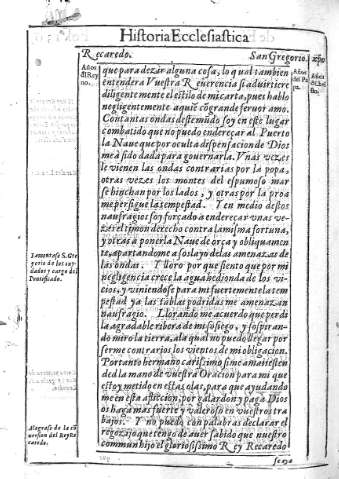 Historia Ecclesiastica
Recaredo. San Gregorio.
Años
dl Rey
no.
Años
del Pa
pa.
Años
que para dezir alguna cosa, lo qual tambien
entendera Vuestra Reuerencia si aduirtiere
diligentemente el estilo de mi carta, pues hablo
negligentemente aquiẽ cõ grande feruor amo.
Con tantas ondas deste mũdo soy en este lugar
combatido que no puedo endereçar al Puerto
la Naue que por oculta dispensacion de Dios
me a sido dada para gouernarla. Vnas vezes
le vienen las ondas contrarias por la popa,
otras vezes los montes del espumoso mar
se hinchan por los lados, y otras por la proa
me persigue la tempestad. Y en medio destos
naufragios soy forçado a endereçar vnas ve-
zes el timon derecho contra la misma fortuna,
y otras a ponerla Naue de orça y obliquamen-
te, apartandome a soslayo de las amenazas de
las ondas. Y lloro por que siento que por mi
negligencia crece la agua hedionda de los vi-
cios, y viniendose para mi fuertemente la tem
pestad ya las tablas podridas me amenazan
naufragio. Llorando me acuerdo que perdi
la agradable ribera de mi sosiego, y sospiran-
do miro la tierra, a la qual no puedo llegar por
ser me contrarios los vientos de mi obligacion.
Por tanto hermano carissimo si me amais esten
ded la mano de vuestra Oracion para mi que
estoy metido en estas olas, para que ayudando
me en esta afliccion, por galardon y paga Dios
os haga mas fuerte y valeroso en vuestros tra
bajos. Y no puedo con palabras declarar el
regozijo que tengo de auer sabido que nuestro
commun hijo el gloriosissimo Rey Recaredo
Lamentase S. Gre
gorio de los cuy
dados y cargo del
Pontificado.
Alegrase de la cõ
uersion del Rey Re
caredo.